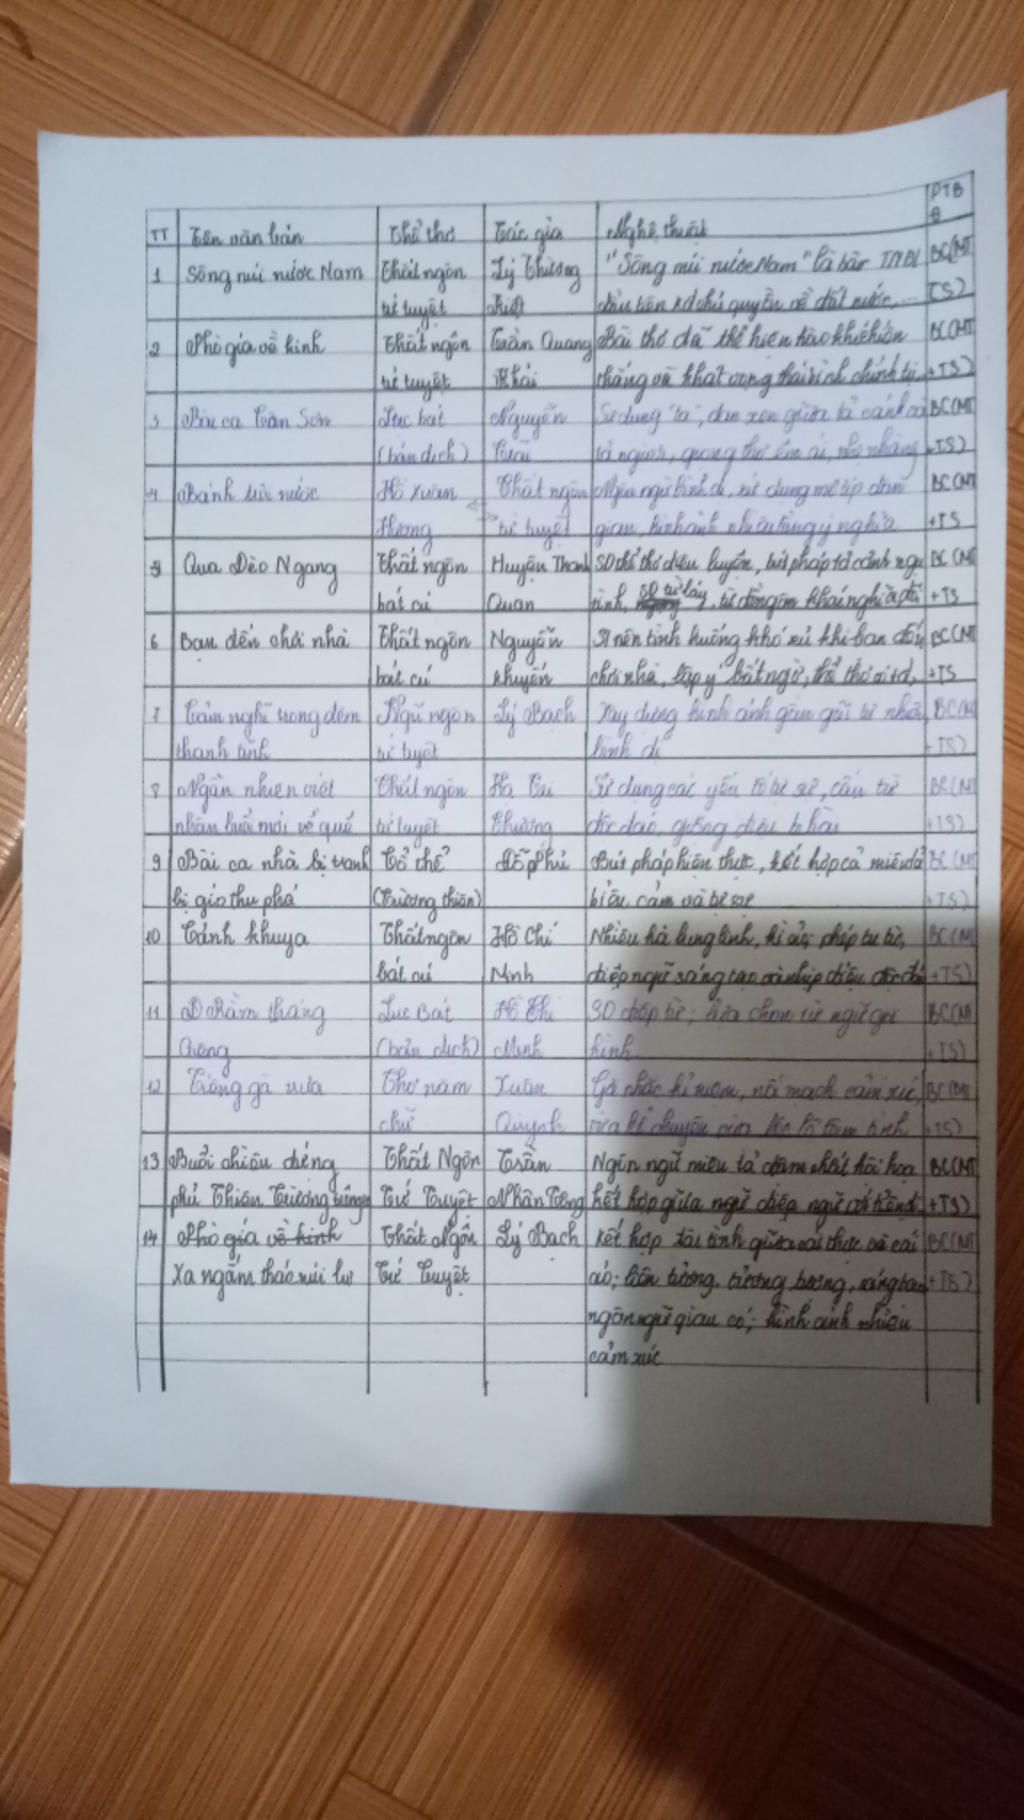 TT Tên văn bản Thể thơ Tác giả Nghệ thuật PTBĐ
1 Sông núi nước Nam Thất ngôn Lý Thường "Sông núi nước Nam" là bản TNĐL BC(MT
tứ tuyệt Kiệt đầu tiên kđ chủ quyền về đất nước,... TS)
2 Phò giá về kinh Thất ngôn Trần Quang Bài thơ đã thể hiện hào khí chiến BC(MT
tứ tuyệt Khải thắng và khát vọng thái bình thịnh trị +TS)
3 Bài ca Côn Sơn Lục bát Nguyễn Sử dụng "ta", đan xen giữa tả cảnh và BC(MT
(bản dịch) Trãi tả người, giọng thơ êm ái, nhẹ nhàng +TS)
4 Bánh trôi nước Hồ Xuân Thất ngôn Ngôn ngữ bình dị, sử dụng mô típ dân BC(MT
Hương tứ tuyệt gian, hình ảnh nhiều tầng ý nghĩa +TS
5 Qua Đèo Ngang Thất ngôn Huyện Thanh SD thể thơ điêu luyện, bút pháp tả cảnh ngụ BC(MT
bát cú Quan tình, sd từ láy, từ đồng âm khác nghĩa +TS
6 Bạn đến chơi nhà Thất ngôn Nguyễn tình huống khó xử khi bạn đến BC(MT
bát cú Khuyến chơi nhà, lập ý bất ngờ, thể thơ +TS
7 Cảm nghĩ trong đêm Ngũ ngôn Lý Bạch Xây dựng hình ảnh gần gũi từ nhã BC(MT
thanh tĩnh tứ tuyệt bình dị +TS)
8 Ngẫn nhiên viết Thất ngôn Hạ Tri Sử dụng các yếu tố tự sự, cấu tứ BC(MT
nhân buổi mới về quê tứ tuyệt Chương độc đáo, giọng điệu bi hài +TS)
9 Bài ca nhà bị tranh Cổ thể Đỗ Phủ Bút pháp hiện thực, kết hợp cả miêu tả BC(MT
bị gió thu phá (Trường thiên) biểu cảm và tự sự +TS)
10 Cảnh khuya Thất ngôn Hồ Chí Nhiều h/a lung linh, kì ảo; phép tu từ, BC(MT
bát cú Minh điệp ngữ sáng tạo nhịp điệu độc đáo +TS)
11 Rằm tháng Lục Bát Hồ Chí SD điệp từ; lựa chọn từ ngữ gợi BC(MT
Giêng (bản dịch) Minh hình +TS)
12 Tiếng gà trưa Thơ năm Xuân nhắc kỉ niệm, nối mạch cảm xúc, BC(MT
chữ Quỳnh vừa kể chuyện vừa bộc lộ tâm tình +TS)
13 Buổi chiều đứng Thất Ngôn Trần Ngôn ngữ miêu tả đậm chất hội họa BC(MT
phủ Thiên Trường trông Tứ Tuyệt Nhân Tông kết hợp giữa ngữ điệp ngữ +TS)
14 Phò giá về kinh Thất Ngôn Lý Bạch Kết hợp tài tình giữa cái thực và cái BC(MT
Xa ngắm thác núi Lư Tứ Tuyệt ảo; liên tưởng, tưởng tượng, sáng tạo +TS)
ngôn ngữ giàu có; hình ảnh nhiều
cảm xúc